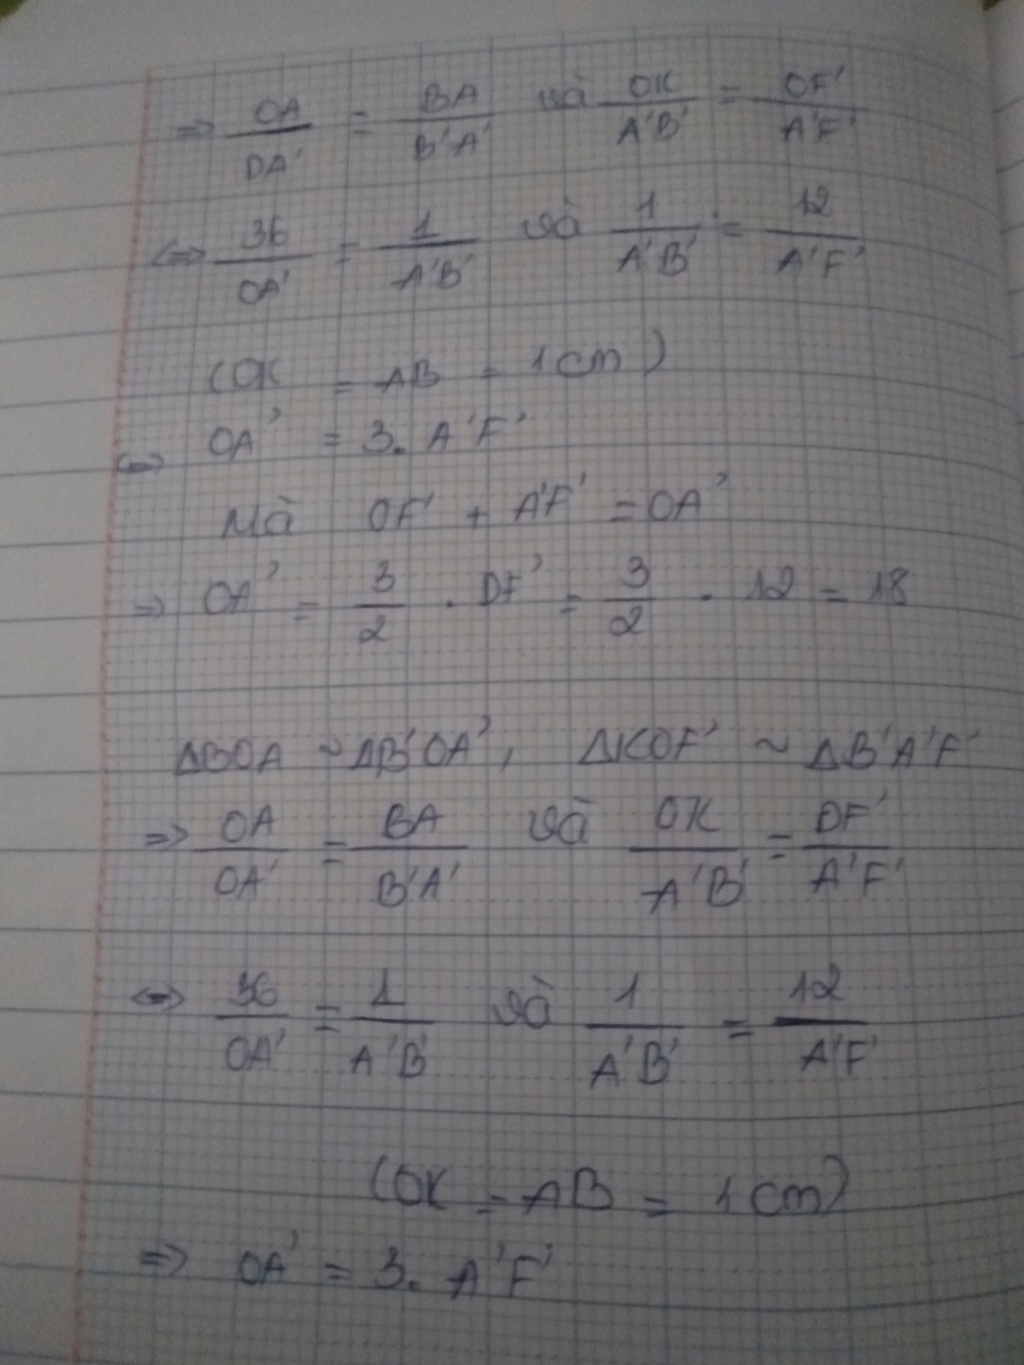 => OA/OA' = BA/B'A' và OK/A'B' = OF'/A'F'
<=> 36/OA' = 1/A'B' và 1/A'B' = 12/A'F'
(OK = AB = 1cm)
<=> OA' = 3. A'F'
Mà OF' + A'F' = OA'
=> OA' = 3/2 . OF' = 3/2 . 12 = 18
ΔBOA ~ ΔB'OA', ΔKOF' ~ ΔB'A'F'
=> OA/OA' = BA/B'A' và OK/A'B' = OF'/A'F'
<=> 36/OA' = 1/A'B' và 1/A'B' = 12/A'F'
(OK = AB = 1cm)
=> OA' = 3. A'F'